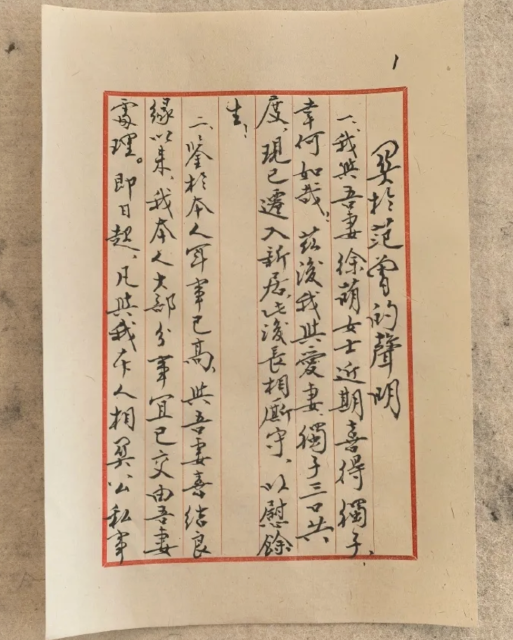 1
關於范曾的聲明
一、我與吾妻徐萌女士近期喜得獨子，
幸何如哉。兹後我與愛妻獨子三口共
度，現已遷入新居，此後長相厮守，以慰餘
生；
二、鑒於本人年事已高，與吾妻喜結良
緣以來，我本人大部分事宜已交由吾妻
處理。即日起，凡與我本人相關公私事